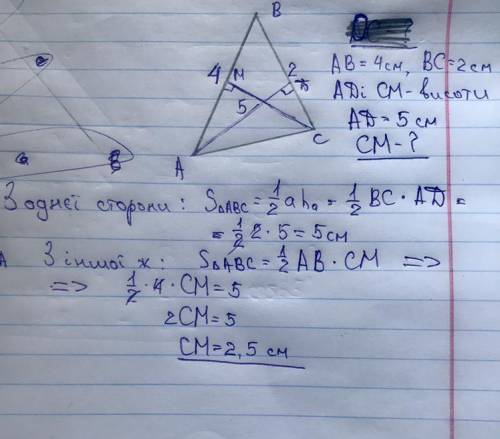 B
AB = 4 см, BC = 2 см
4 M 2 D
AD і CM - висоти
5
AD = 5 см
C
CM - ?
A
З однєї сторони : S∆ABC = 1/2 a hₐ = 1/2 BC · AD =
= 1/2 2 · 5 = 5 см
З іншої ж : S∆ABC = 1/2 AB · CM =>
=> 1/2 · 4 · CM = 5
2CM = 5
CM = 2,5 см